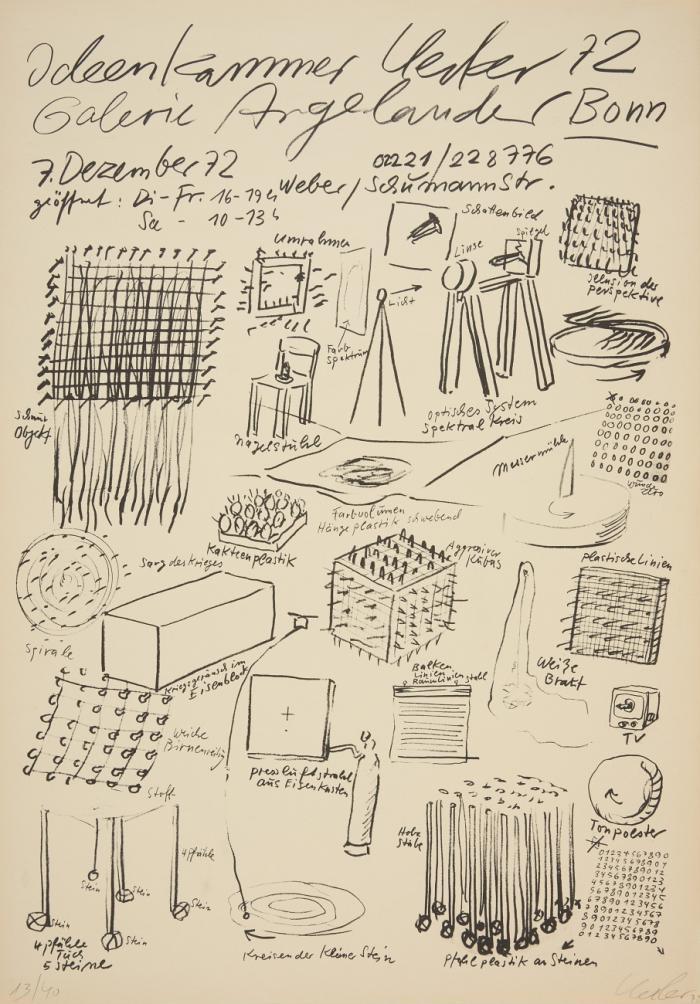 Ideenkammer Uecker 72
Galerie Angelander Bonn
7. Dezember 72
02221/228776
geöffnet: Di - Fr. 16-19h Weber/Schumannstr.
Sa - 10-13h
Schattenbild
Spiegel
Umrahmen
Linse
Licht
Illusion der
Perspektive
Farb
Spektrum
Schnur
Objekt
Nagelstühl
Optisches System
Spektral Kreis
Messermühle
Farbvolümen
Hängeplastik schwebend
Kakteenplastik
Aggressiver
Kübus
Plastische Linien
Sarg des Krieges
Spirale
Kriegsgeräusch im
Eisenblock
Balken
Linien
Raumlinien Stahl
Weiße
Braut
Weiche
TV
Pressluftstrahl
aus Eisenkasten
Stoff
Holz
Stäbe
Tonpoester
4 Pfähle
Stein
Stein
Stein
Stein
Stein
4 Pfähle
Tuch
5 Steine
Kreisender kleiner Stein
Pfahlplastik an Steinen
01234567890
12345678901
23456789012
34567890123
45678901234
56789012345
67890123456
78901234567
89012345678
90123456789
01234567890
13/40
Uecker